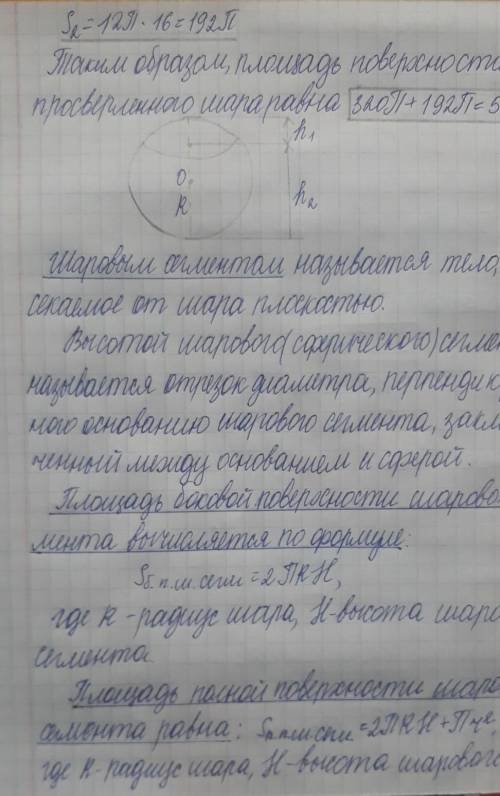 S₂=12П·16=192П
Таким образом, площадь поверхности
просверленного шара равна 320П+192П=5
h₁
O
R
h₂
Шаровым сегментом называется тело,
секаемое от шара плоскостью.
Высотой шарового(сферического)сегмен
называется отрезок диаметра, перпендику
ного основанию шарового сегмента, заклю
ченный между основанием и сферой.
Площадь боковой поверхности шарово
мента вычисляется по формуле:
Sб.п.ш.сегм=2ПRH,
где R-радиус шара, H-высота шаро
сегмента.
Площадь полной поверхности шаро
семонта равна: Sп.п.ш.сегм=2ПRH+Пr²,
где R-радиус шара, H-высота шарового